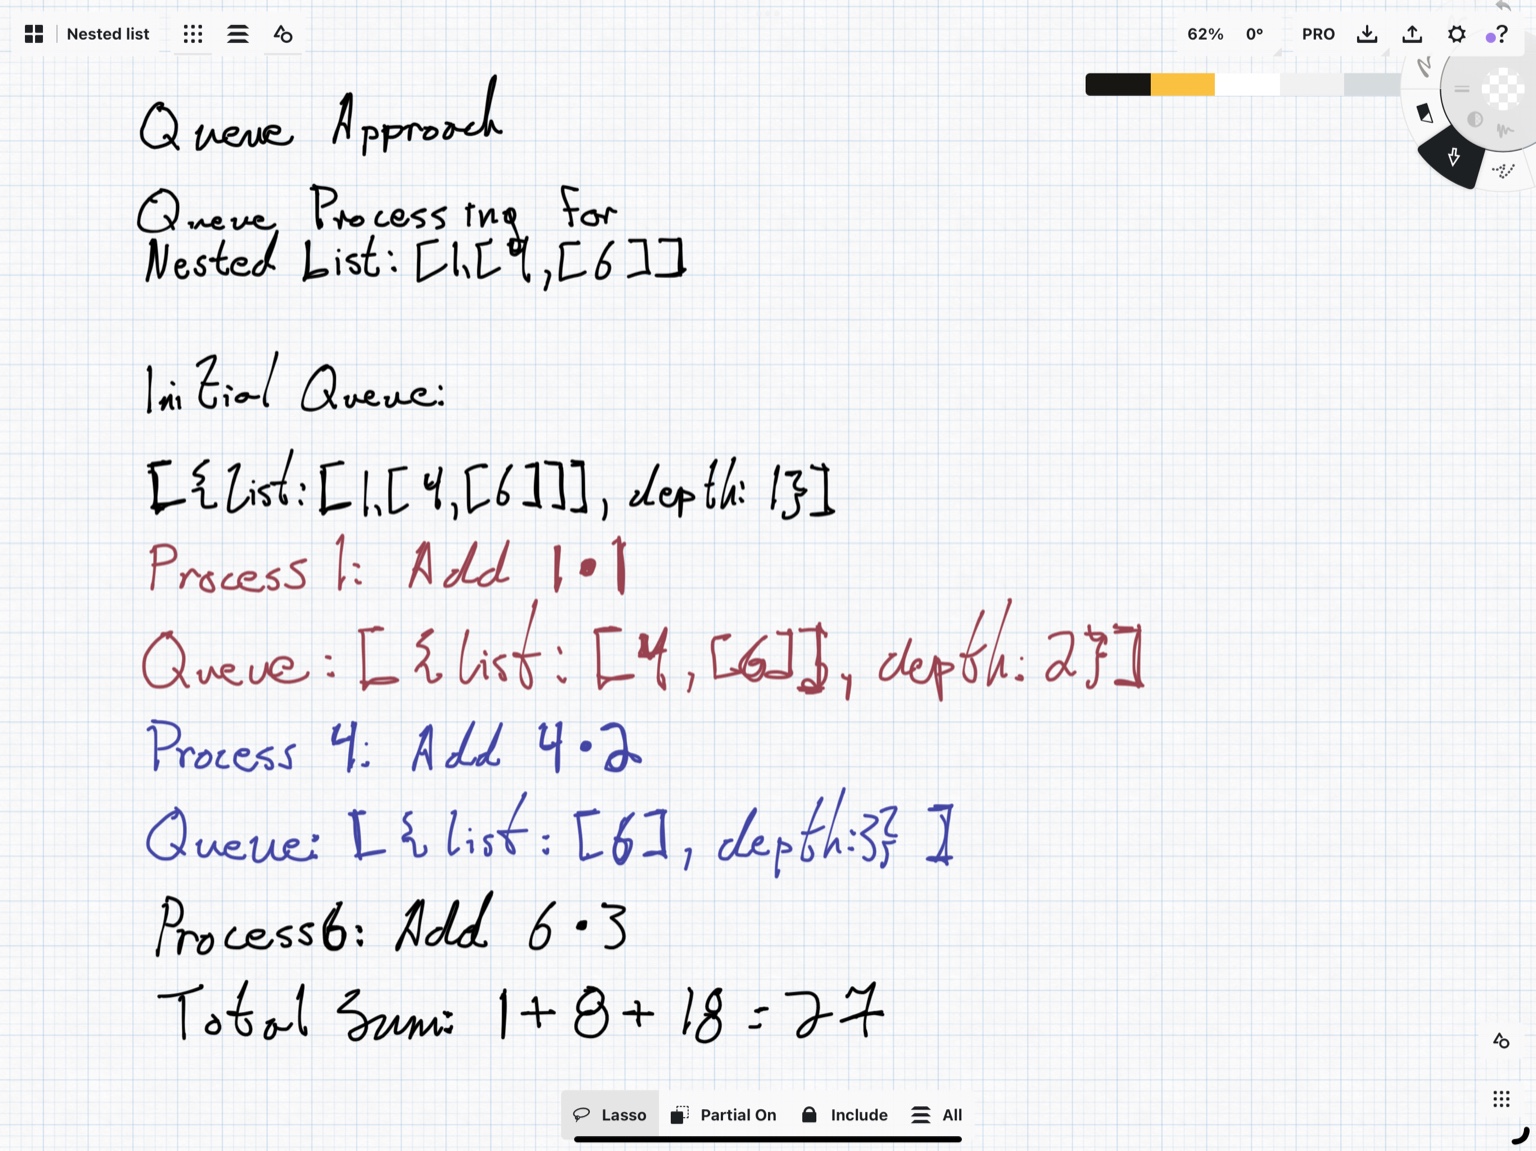 Nested list
62% 0° PRO ?
Queue Approach
Queue Processing for
Nested List: [1,[4,[6]]
Initial Queue:
[{list:[1,[4,[6]]], depth: 1}]
Process 1: Add 1•1
Queue: [{list: [4,[6]], depth: 2}]
Process 4: Add 4•2
Queue: [{list: [6], depth:3}]
Process6: Add 6•3
Total Sum: 1+8+18=27
Lasso Partial On Include All